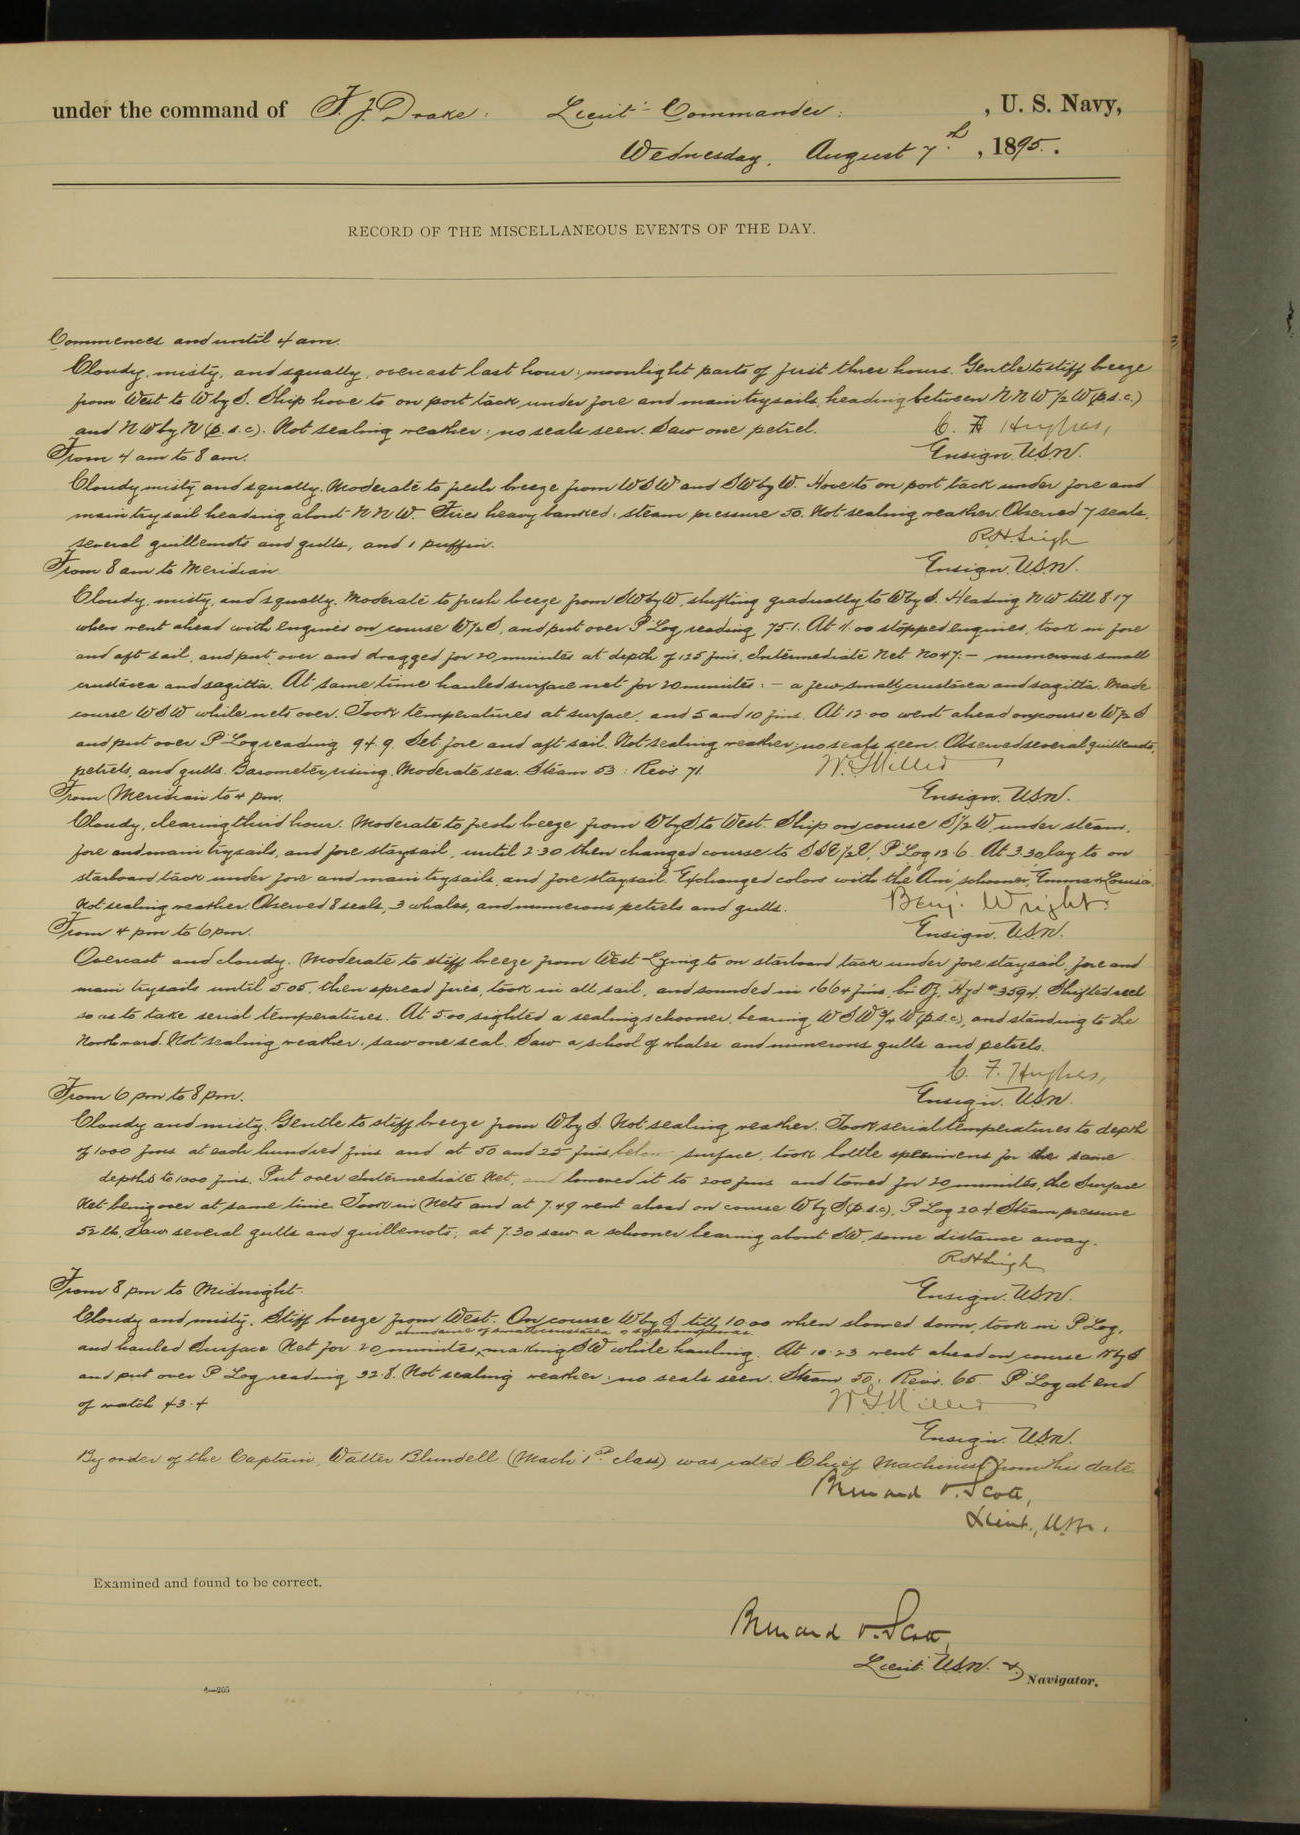 under the command of F. J. Drake. Lieut-Commander. , U. S. Navy,
Wednesday, August 7th, 1895.
RECORD OF THE MISCELLANEOUS EVENTS OF THE DAY.
Commences and until 4 am.
Cloudy, misty, and squally, overcast last hour; moonlight parts of first three hours. Gentle to stiff breeze
from West to W by S. Ship hove to on port tack under fore and main trysails, heading between NNW 1/2 W (p.s.c.)
and NW by N (p.s.c.). Not sealing weather; no seals seen. Saw one petrel. C. F. Hughes,
From 4 am to 8 am. Ensign. U.S.N.
Cloudy misty and squally. Moderate to fresh breeze from WSW and SW by W. Hove to on port tack under fore and
main trysail heading about NNW. Fires heavy banked; steam pressure 50. Not sealing weather. Observed 7 seals,
several guillemots and gulls, and 1 puffin. R.H. Leigh
From 8 am to Meridian Ensign. U.S.N.
Cloudy, misty, and squally. Moderate to fresh breeze from SW by W, shifting gradually to W by S. Heading NW till 8.17
when went ahead with engines on course W 1/2 S, and put over P Log reading 75.1. At 11.00 stopped engines, took in fore
and aft sail, and put over and dragged for 20 minutes at depth of 125 fms, Intermediate Net No 47:— numerous small
crustacea and sagitta. At same time hauled surface net for 20 minutes:— a few small crustacea and sagitta. Made
course WSW while nets over. Took temperatures at surface, and 5 and 10 fms. At 12.00 went ahead on course W 1/2 S
and put over P Log reading 94.9. Set fore and aft sail. Not sealing weather; no seals seen. Observed several guillemots,
petrels, and gulls. Barometer rising. Moderate sea. Steam 53; Revs 71. W. G. Miller
From Meridian to 4 pm. Ensign. U.S.N.
Cloudy, clearing third hour. Moderate to fresh breeze from W by S to West. Ship on course S 1/2 W, under steam,
fore and main trysails, and fore staysail, until 2.30 then changed course to SSE 1/2 E, P Log 12.6. At 3.30 lay to on
starboard tack under fore and main trysails, and fore staysail. Exchanged colors with the Am. schooner, Emma & Louisa.
Not sealing weather. Observed 8 seals, 3 whales, and numerous petrels and gulls. Benj. Wright.
From 4 pm to 6 pm. Ensign. U.S.N.
Overcast and cloudy. Moderate to stiff breeze from West. Lying to on starboard tack under fore staysail, fore and
main trysails until 5.05, then spread fires, took in all sail, and sounded in 1664 fms, br. Oz, Hyd # 3594. Shifted reel
so as to take serial temperatures. At 5.00 sighted a sealing schooner, bearing WSW 3/4 W (p.s.c), and standing to the
Northward. Not sealing weather; saw one seal. Saw a school of whales and numerous gulls and petrels.
C. F. Hughes,
From 6 pm to 8 pm. Ensign. U.S.N.
Cloudy and misty. Gentle to stiff breeze from W by S. Not sealing weather. Took serial temperatures to depth
of 1000 fms at each hundred fms and at 50 and 25 fms below surface, took bottle specimens for the same
depths to 1000 fms. Put over Intermediate Net, and lowered it to 200 fms and towed for 20 minutes, the Surface
Net being over at same time. Took in Nets and at 7.49 went ahead on course W by S (p.s.c), P Log 20.4. Steam pressure
52 lb. Saw several gulls and guillemots; at 7.30 saw a schooner bearing about SW, some distance away.
R.H. Leigh
From 8 pm to Midnight. Ensign. U.S.N.
Cloudy and misty. Stiff breeze from West. On course W by S till 10.00 when slowed down, took in P Log,
abundance of small crustacea & siphonophorae
and hauled Surface Net for 20 minutes, making SW while hauling. At 10.23 went ahead on course W by S
and put over P Log reading 32.8. Not sealing weather; no seals seen. Steam 50; Revs. 65. P Log at end
of watch 43.4 W. G. Miller
Ensign. U.S.N.
By order of the Captain, Walter Blundell (Mach 1st class) was rated Chief Machinist from this date
Bernard O. Scott,
Lieut., U.S.N.
Examined and found to be correct.
Bernard O. Scott,
Lieut. U.S.N. & Navigator.
4—205